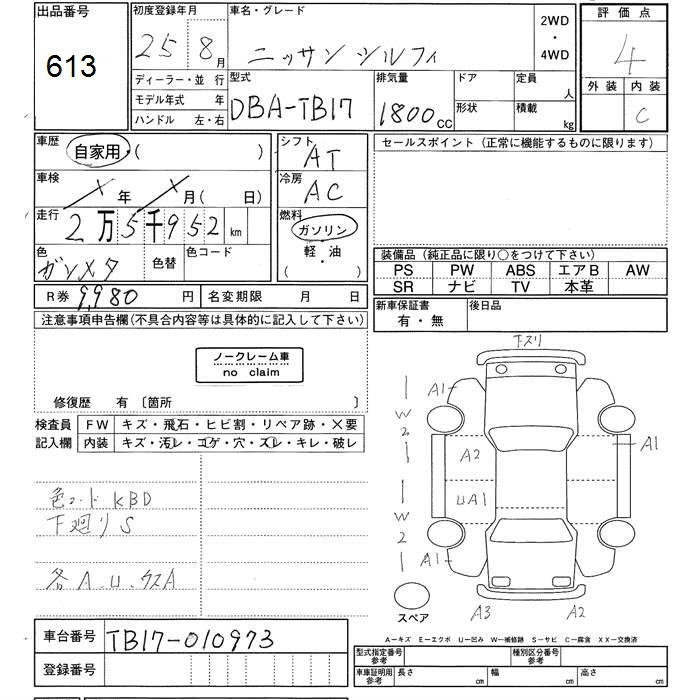 出品番号
613
初度登録年月
25 8月
車名・グレード
ニッサン シルフィ
2WD
・
4WD
評価点
4
外装 内装
C
ディーラー・並行
モデル年式 年
ハンドル 左・右
型式
DBA-TB17
排気量
1800cc
ドア
形状
定員
人
積載
kg
車歴
自家用・( )
シフト
AT
セールスポイント (正常に機能するものに限ります)
車検
年 月( 日)
冷房
AC
走行
2万5千952km
燃料
ガソリン
軽・油
( )
色
ガンメタ
色替
色コード
装備品 (純正品に限り○をつけて下さい)
PS PW ABS エアB AW
SR ナビ TV 本革
R券 9,980円
名変期限 月 日
新車保証書
有・無
後日品
注意事項申告欄(不具合内容等は具体的に記入して下さい)
ノークレーム車
no claim
修復歴 有 〔箇所 〕
検査員
記入欄
FW キズ・飛石・ヒビ割・リペア跡・×要
内装 キズ・汚レ・コゲ・穴・スレ・キレ・破レ
色コード KBD
下廻りS
各A.U.
下スリ
A1
W2
A2
A1
UA1
W2
A1
A3
A2
スペア
A−キズ E−エクボ U−凹み W−補修跡 S−サビ C−腐食 XX−交換済
車台番号
TB17-010973
登録番号
型式指定番号
参考
種別区分番号
参考
車庫証明用
参考
長さ cm
幅 cm
高さ cm